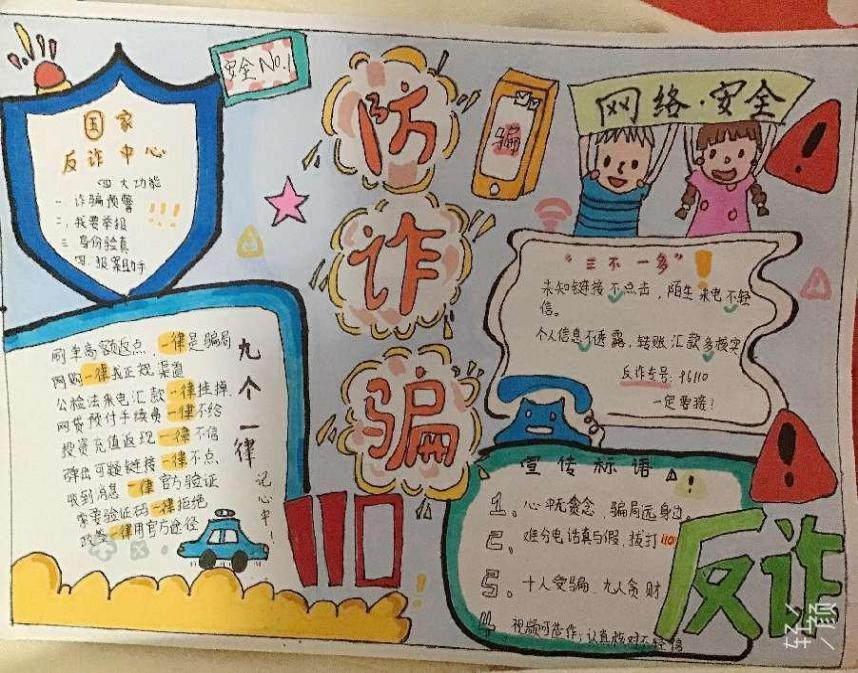 安全NO.1
国家
反诈中心
四大功能
一、诈骗预警
二、我要举报
三、身份验真
四、报案助手
防
诈
骗
骗
网络·安全
"三不一多"
未知链接不点击，陌生来电不轻
信。
个人信息不透露，转账汇款多核实
反诈专号：96110
一定要接！
九个一律
记心中！
刷单高额返点，一律是骗局
网购一律找正规渠道
公检法来电汇款一律挂掉
网贷预付手续费一律不给
投资充值返现一律不信
弹出可疑链接一律不点
收到消息一律官方验证
索要验证码一律拒绝
一律用官方途径
110
宣传标语
1、心中无贪念 骗局远身边。
2、难分电话真与假，拨打110
3、十人受骗 九人贪财
4、视频可造作，认真核对不轻信
反诈
轻颜